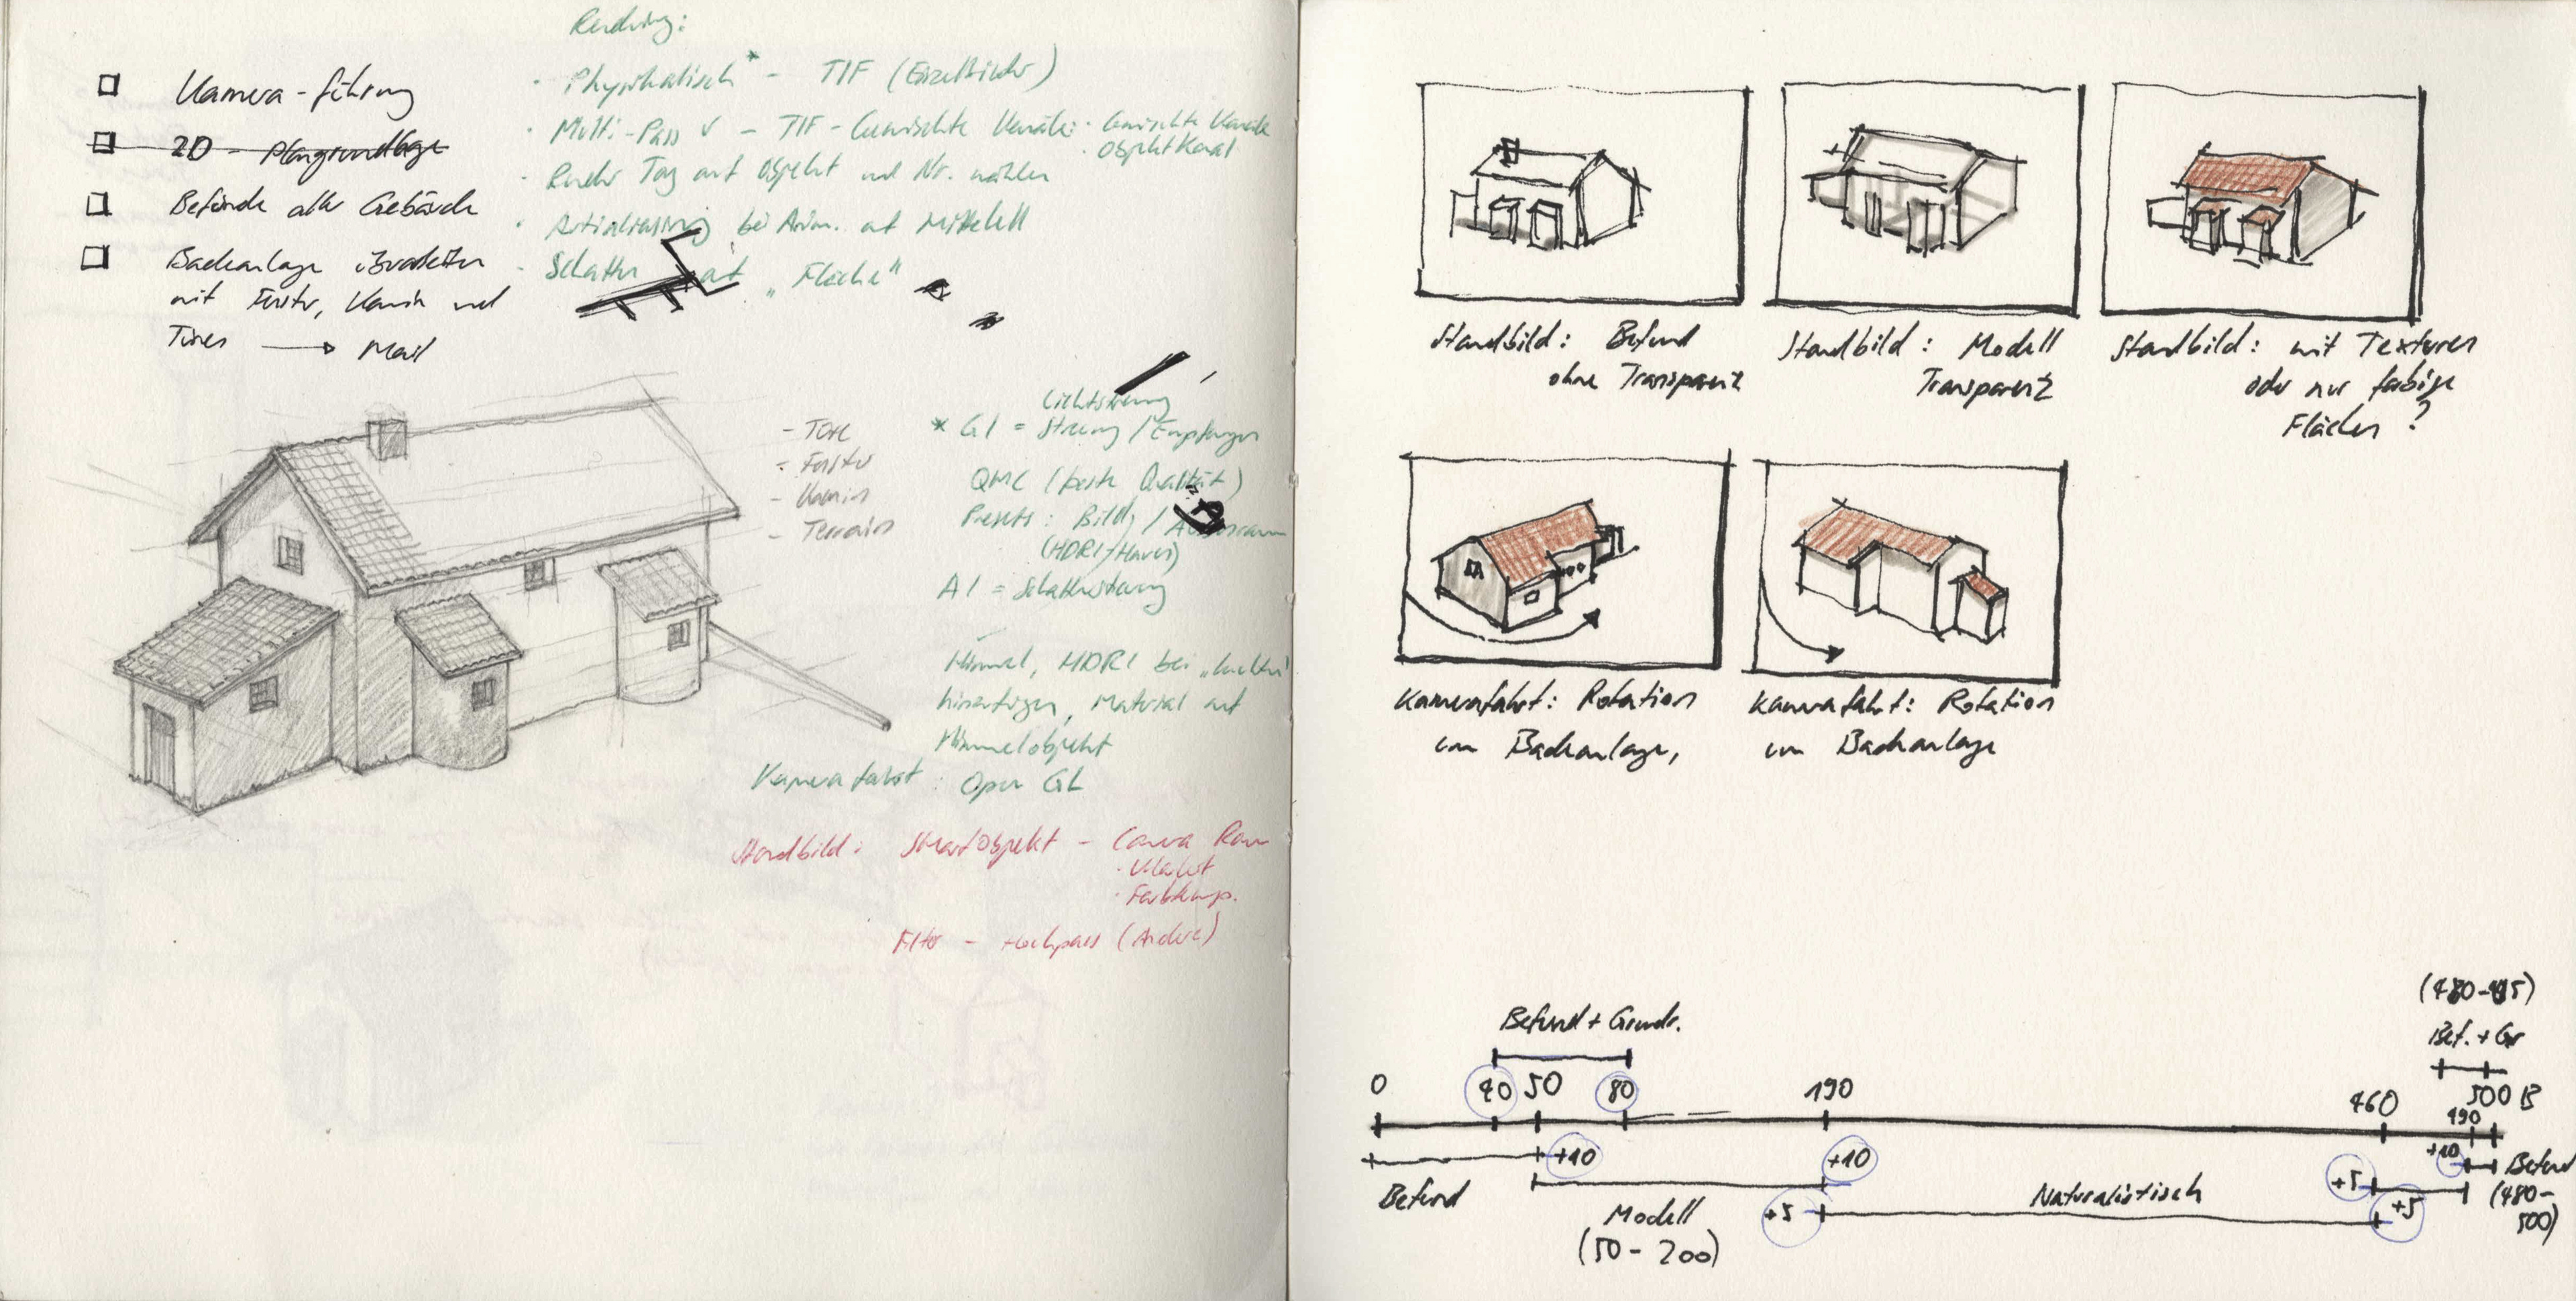 Kamera-führung
2D - Plangrundlage
Befunde aller Gebäude
Badeanlage überarbeiten
mit Fenster, Kamin und
Türen → Mail
Rendering:
· Physikalisch* - TIF (Einzelbilder)
· Multi-Pass √ - TIF - Gemischte Kanäle: · Gemischte Kanäle
· Objektkanal
· Render Tag auf Objekt und Nr. wählen
· Antialiasing bei Anim. auf Mitchell
· Schatten auf „Fläche“
- Türe
- Fenster
- Kamin
- Terrain
Lichtstreuung
* GI = Streuung / Empfangen
QMC (beste Qualität)
Presets: Bild /
(HDRI/Himmel)
Schattierung
Himmel, HDRI bei
hinzufügen, Material auf
Himmelobjekt
Kamerafahrt: Open GL
Standbild: Smartobjekt - Camera Raw
· Klarheit
Filter - Hochpass (Andere)
Standbild: Befund
ohne Transparenz
Standbild: Modell
Transparenz
Standbild: mit Texturen
oder nur farbige
Flächen?
Kamerafahrt: Rotation
um Badeanlage,
Kamerafahrt: Rotation
um Badeanlage
Befund + Grundr.
Bef. + Gr
0 40 50 80 190 460 490 500 B
+10 +10 +10
Befund
Modell
(50 - 200)
+5
Naturalistisch
+5
+5
Befund
(480-
500)